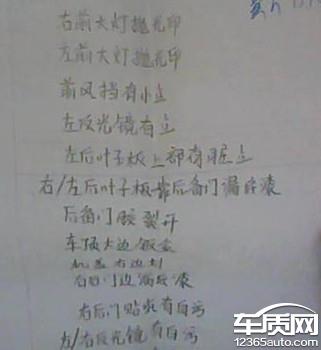 右前大灯抛光印
左前大灯抛光印
前风挡有小点
左反光镜有点
左后叶子板上部有脏点
右/左后叶子板靠后备门漏底漆
后备门胶裂开
车顶大边钣金
机盖右边
右后门边漏底漆
右后门贴纸有白污
左/右反光镜有白污
车质网
12365auto.com